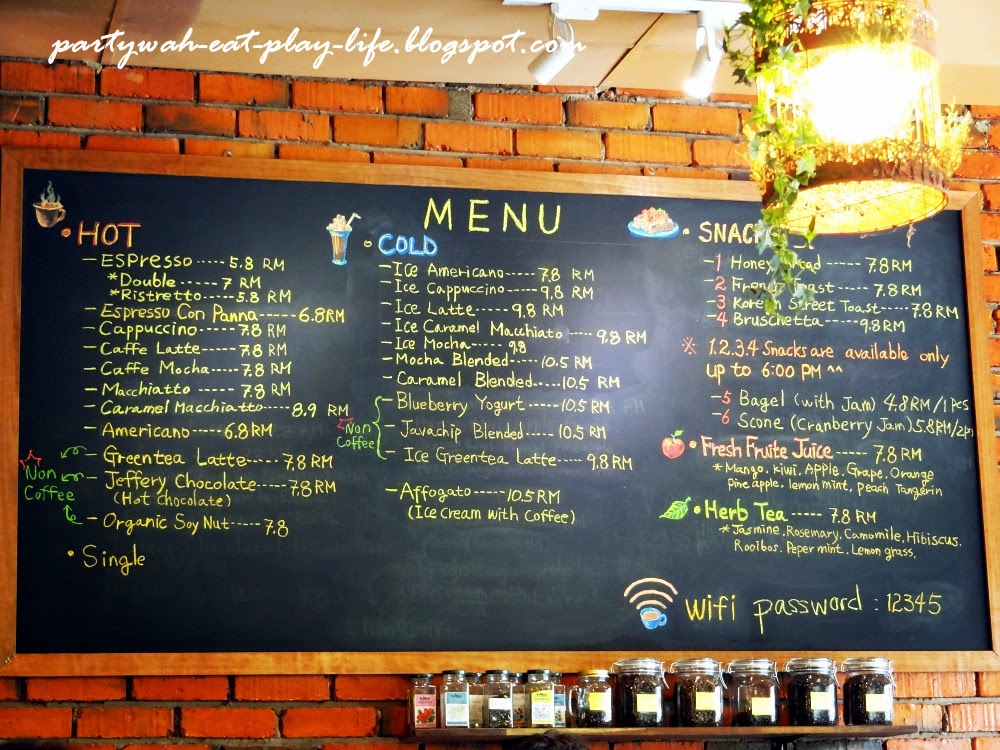 partywah-eat-play-life.blogspot.com
MENU
• HOT
- ESPresso ----- 5.8 RM
*Double ------ 7 RM
*Ristretto ---- 5.8 RM
- Espresso Con Panna ---- 6.8RM
- Cappuccino ----- 7.8 RM
- Caffe Latte ----- 7.8 RM
- Caffe Mocha ---- 7.8 RM
- Macchiatto ----- 7.8 RM
- Caramel Macchiatto ---- 8.9 RM
- Americano ---- 6.8 RM
Non Coffee
- Greentea Latte ----- 7.8 RM
- Jeffery Chocolate ---- 7.8 RM
(Hot chocolate)
- Organic Soy Nut ----- 7.8
• Single
• COLD
- Ice Americano ----- 7.8 RM
- Ice Cappuccino ---- 9.8 RM
- Ice Latte ---- 9.8 RM
- Ice Caramel Macchiato ---- 9.8 RM
- Ice Mocha --- 9.8
- Mocha Blended ---- 10.5 RM
- Caramel Blended ----- 10.5 RM
Non Coffee
- Blueberry Yogurt ----- 10.5 RM
- Javachip Blended ---- 10.5 RM
- Ice Greentea Latte ---- 9.8 RM
- Affogato ------ 10.5 RM
(Ice cream with Coffee)
-1 Honey ---- 7.8RM
-2 ----- 7.8 RM
-3 Korean Street Toast ---- 7.8 RM
-4 Bruschetta ----- 9.8RM
※ 1.2.3.4 Snacks are available only
up to 6:00 PM ^^
-5 Bagel (with Jam) 4.8RM/1pcs
-6 Scone (Cranberry Jam) 5.8RM/2pcs
• Fresh Fruite Juice ----- 7.8 RM
* Mango, kiwi, Apple, Grape, Orange
Pine apple, lemon mint, peach Tangerin
• Herb Tea ----- 7.8 RM
* Jasmine, Rosemary, Camomile, Hibiscus.
Rooibos. Peper mint. Lemon grass,
wifi password : 12345